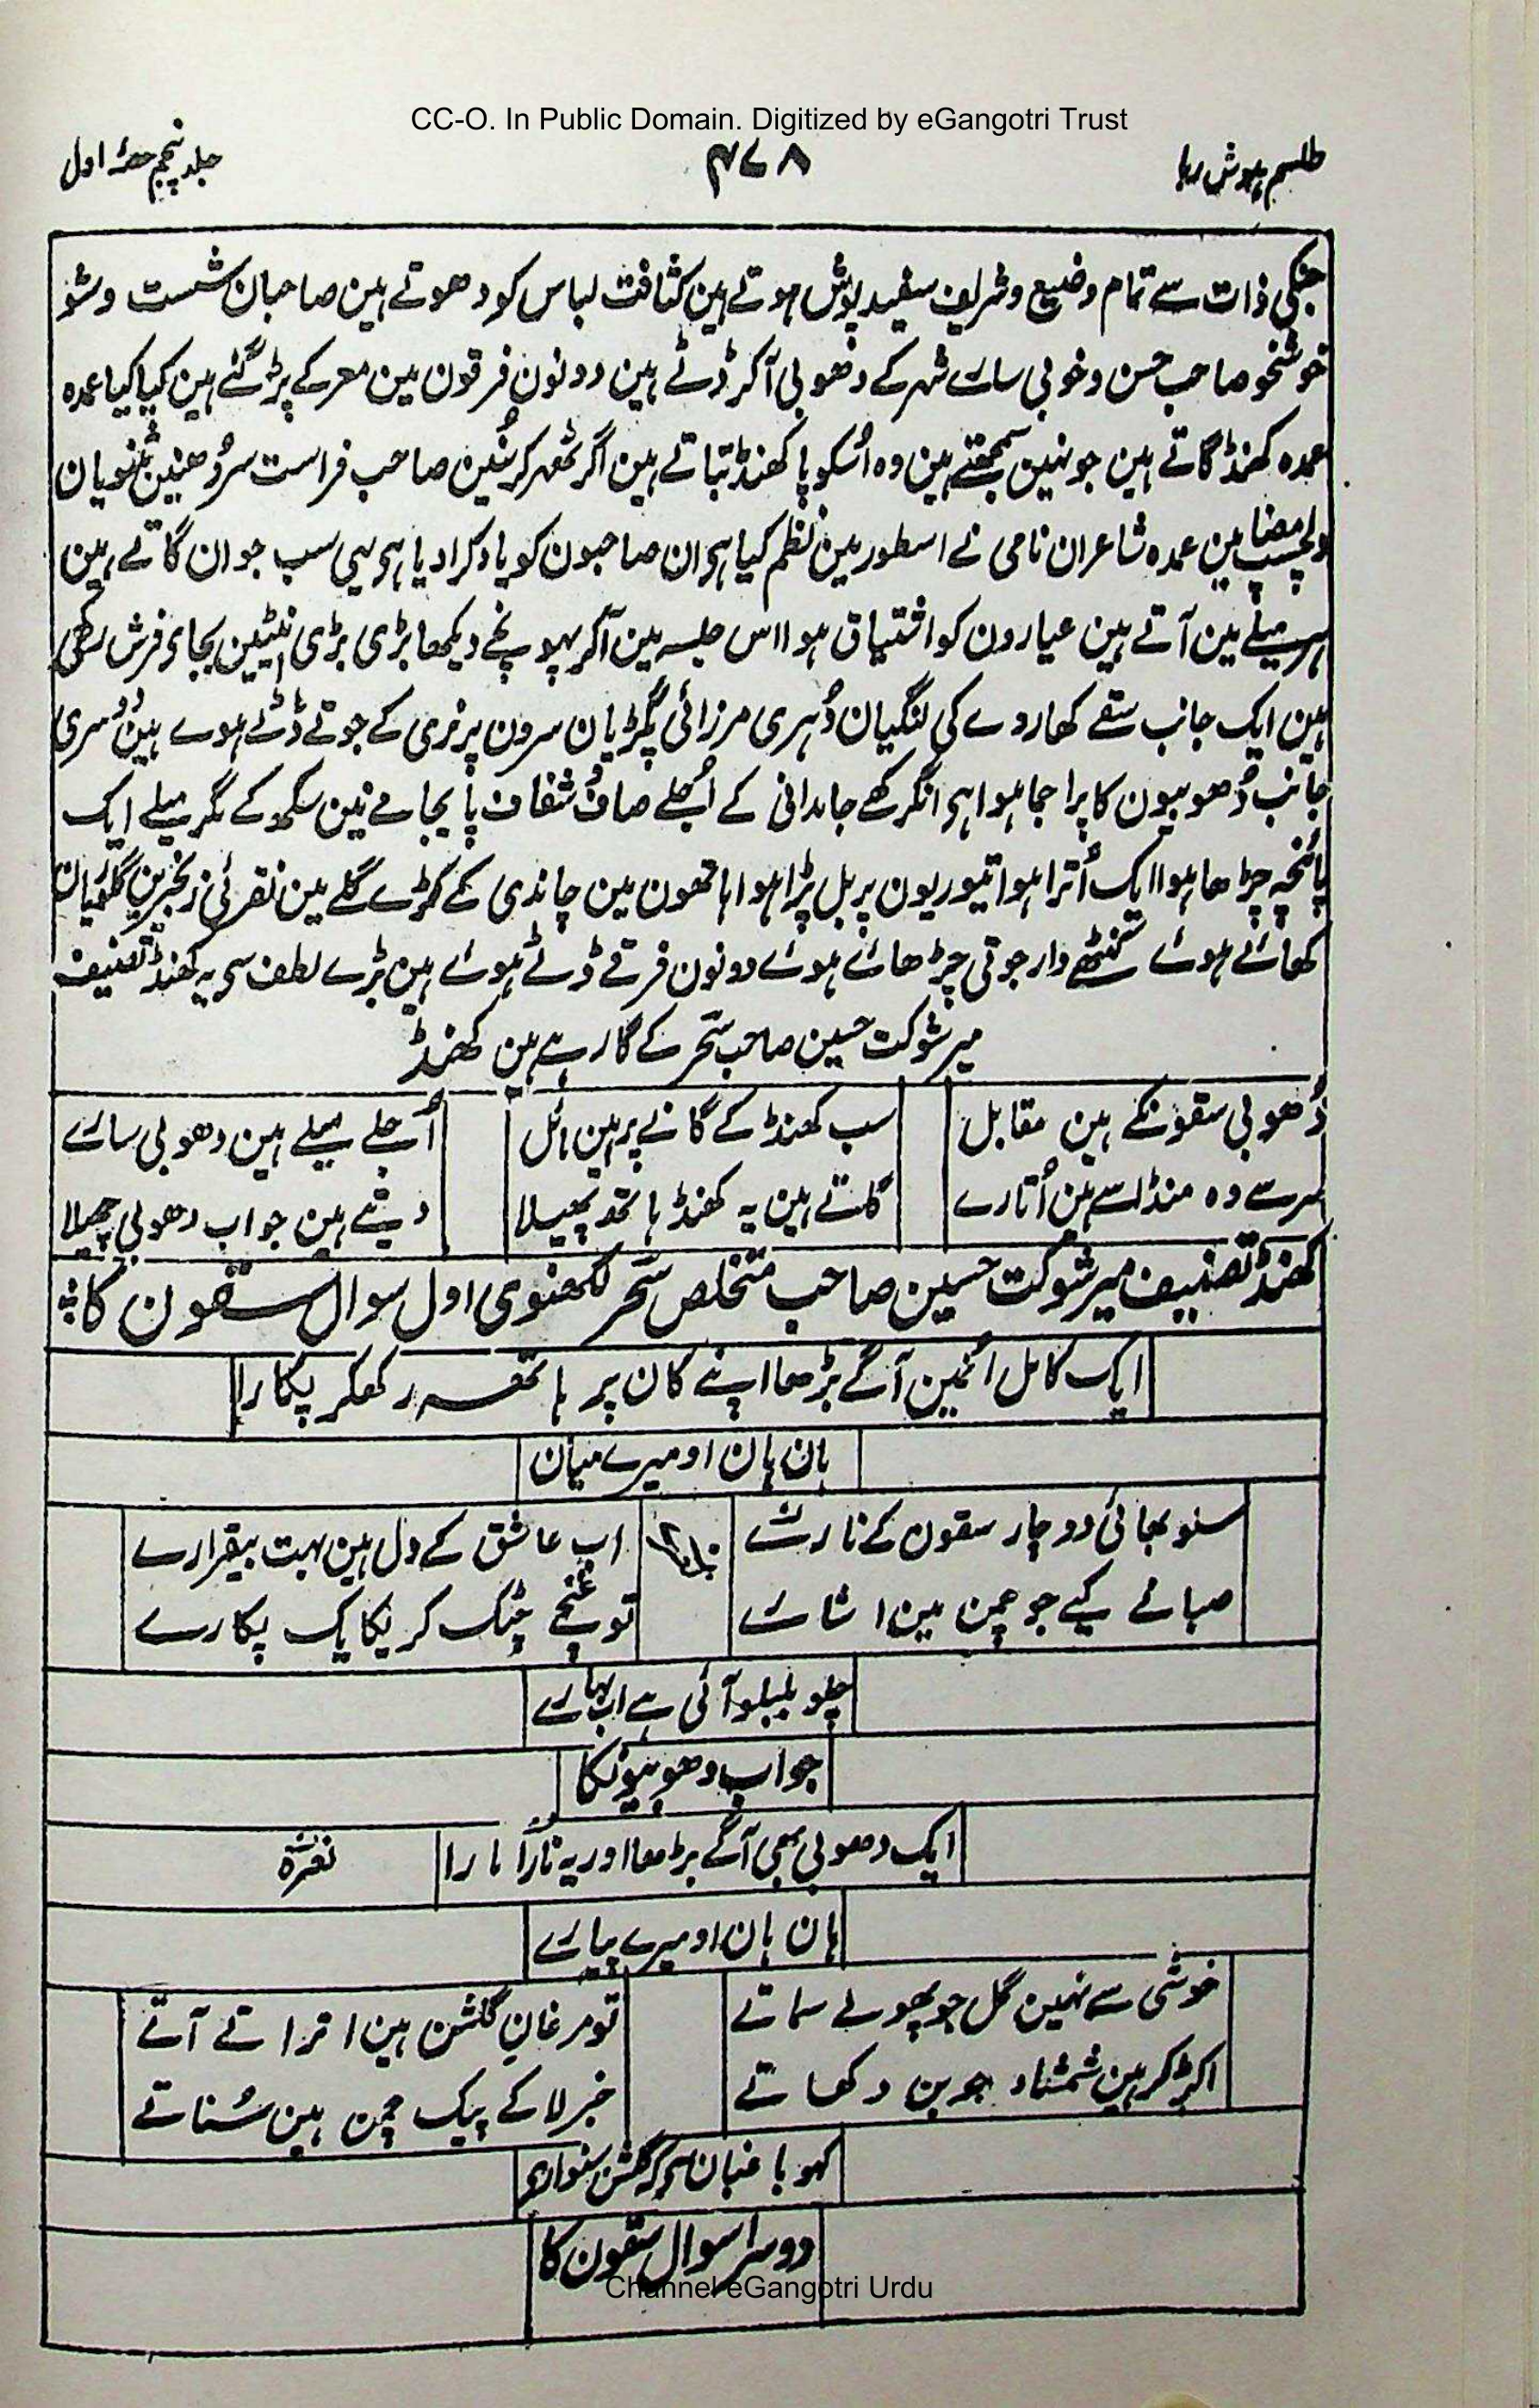 CC-O. In Public Domain. Digitized by eGangotri Trust
طلسم ہوش ربا
۴۷۸
جلد پنجم حصۂ اول
جنکی ذات سے تمام وضیع وشریف سفید پوش ہوتے ہین کثافت لباس کو دھوتے ہین صاحبان شست وشو
خوشخو صاحب حسن وخوبی سارے شہر کے دھوبی آکر ڈٹے ہین دونون فرقون مین معرکے پڑ گئے ہین کیا کیا عمدہ
عمدہ کھنڈ گاتے ہین جو نہین سمجھتے ہین وہ اُسکو پاکھنڈ بتاتے ہین اگر ٹھہر کر سُنین صاحب فراست سر دُھنین مثنویان
دلچسپ مضامین عمدہ شاعران نامی نے اسطور مین نظم کیا ہی ان صاحبون کو یاد کرا دیا ہی یہی سب جوان گاتے ہین
ہر میلے مین آتے ہین عیارون کو اشتیاق ہوا اس جلسہ مین آکر پہونچے دیکھا بڑی بڑی اینٹین بجاے فرش رکھی
ہین ایک جانب سقے کھاروے کی لنگیان دُہری مرزائی پگڑیان سرون پر نری کے جوتے ڈٹے ہوے ہین دُوسری
جانب دُھوبیون کا پرا جما ہوا ہی انگرکھے جامدانی کے اُجلے صاف شفاف پایجامے نین سکھ کے مگر میلے ایک
پائنچہ چڑھا ہوا ایک اُترا ہوا تیوریون پر بل پڑا ہوا ہاتھون مین چاندی کے کڑے گلے مین نقرئی زنجیرین گلوریان
کھائے ہوئے کنٹھے دار جوتی چڑھائے ہوئے دونون فرقے ڈٹے ہوئے ہین بڑے لطف سے یہ کھنڈ تصنیف
میر شوکت حسین صاحب سحر کے گا رہے ہین کھنڈ
دُھوبی سقونکے ہین مقابل
سب کھنڈ کے گانے پر ہین مائل
اُجلے میلے ہین دھوبی سارے
سر سے وہ منڈاسے ہین اُتارے
گاتے ہین یہ کھنڈ ہاتھ پھیلا
دیتے ہین جواب دھوبی چھیلا
کھنڈ تصنیف میر شوکت حسین صاحب متخلص سحر لکھنوی اول سوال سقون کا
ایک کامل اُنمین آگے بڑھا اپنے کان پر ہاتھ رکھکر پکارا
ہان ہان او میرے میان
سنو بھائی دو چار سقون کے نارے
اب عاشق کے دل ہین بہت بیقرارے
صبا نے کیے جو چمن مین اشارے
تو غنچے چٹک کر یکایک پکارے
چلو بلبلو آئی ہے اب بہارے
جواب دھوبیونکا
ایک دھوبی بھی آگے بڑھا اور یہ نارا مارا
نعرہ
ہان ہان او میرے پیارے
خوشی سے نہین گل جو پھولے سماتے
تو مرغان گلشن ہین اتراتے آتے
اکڑ کر ہین شمشاد جوبن دکھاتے
خبر لا کے پیک چمن ہین سُناتے
کہو باغبان سے کہ گلشن سنوارے
دوسرا سوال سقون کا
Channel eGangotri Urdu